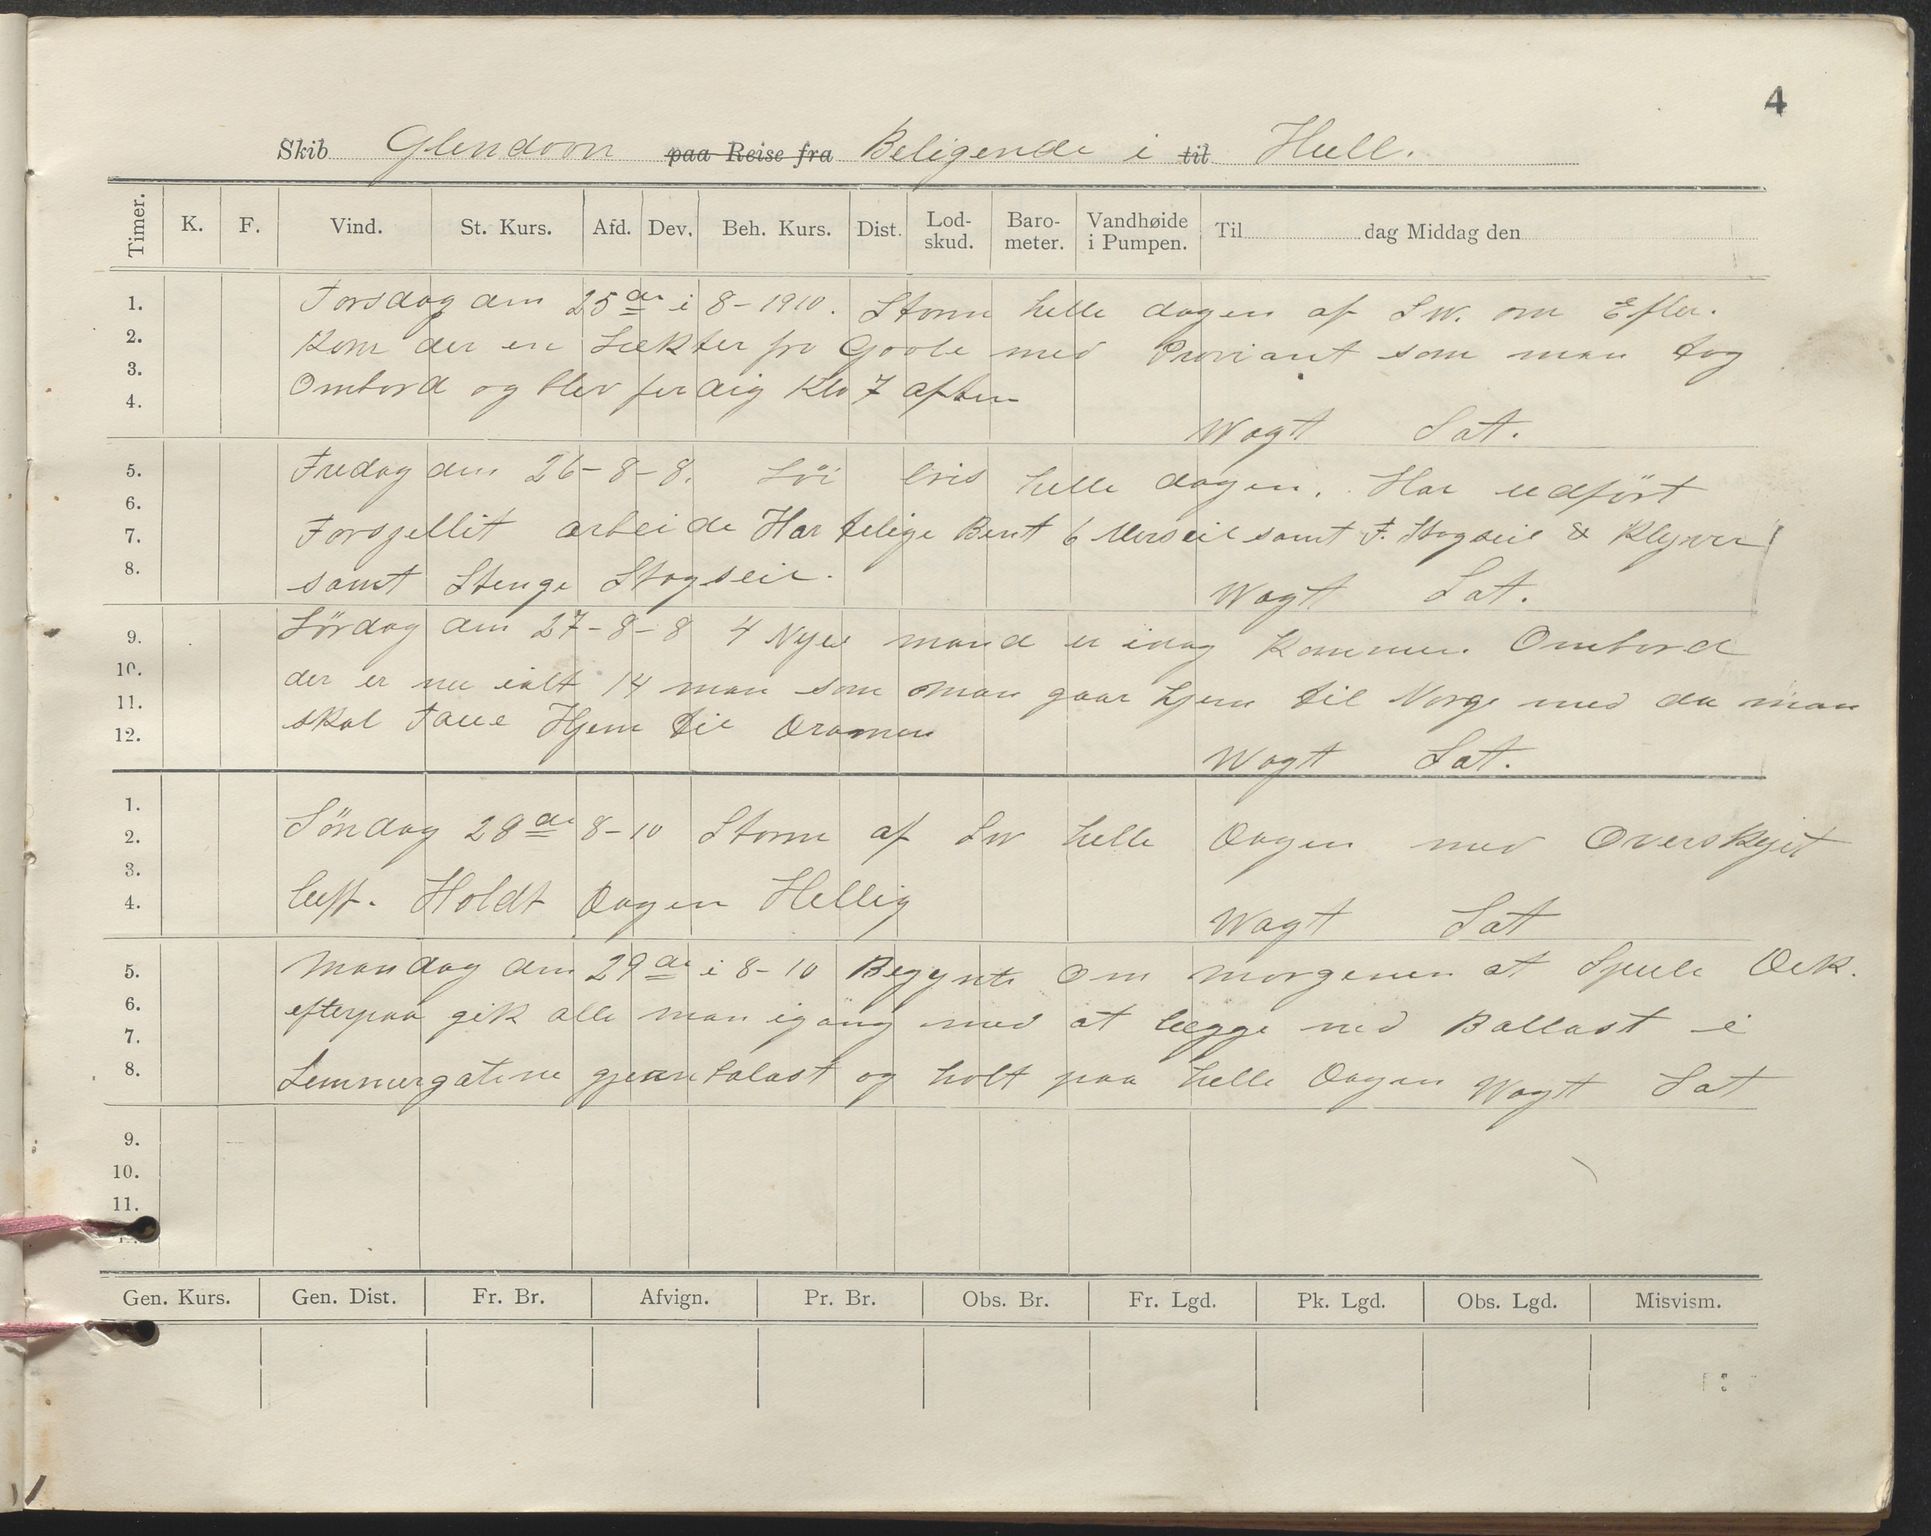 4
Skib Glendoon paa Reise fra Beligende i til Hull.
Timer. K. F. Vind. St. Kurs. Afd. Dev. Beh. Kurs. Dist. Lod-skud. Baro-meter. Vandhøide i Pumpen. Til dag Middag den
1. Torsdag den 25de i 8-1910. Storm helle dagen af SW. om Efter.
2. Kom der en Lækter fra Goole med Proviant som man tog
3. Ombord og blev ferdig Klo 7 aften
4. Wagt Sat.
5. Fredag den 26-8-8. Löi bris helle dagen. Har udfört
6. Forsjellit arbeide Har
7. telige Bent 6 Merseil samt F. Stagseil & Klyver
8. samt Stenge Stagseil. Wagt Sat.
9. Lördag den 27-8-8 4 Nye mand er idag Kommen Ombord
10. der er nu ialt 14 man som man gaar hjem til Norge med da man
11. skal Taue Hjem til Dramen
12. Wagt Sat.
1.
2. Söndag 28de 8-10 Storm af SW helle Dagen med Overskyet
3.
4. luft. Holdt Dagen Hellig Wagt Sat
5. Mandag den 29de i 8-10 Begynte Om morgenen at Spule Dek.
6. efterpaa gik alle man igang med at lægge ned Ballast i
7.
8. Lemmergatene gjenn balast og holt paa helle Dagen Wagt Sat
9.
10.
11.
Gen. Kurs. Gen. Dist. Fr. Br. Afvign. Pr. Br. Obs. Br. Fr. Lgd. Pk. Lgd. Obs. Lgd. Misvism.